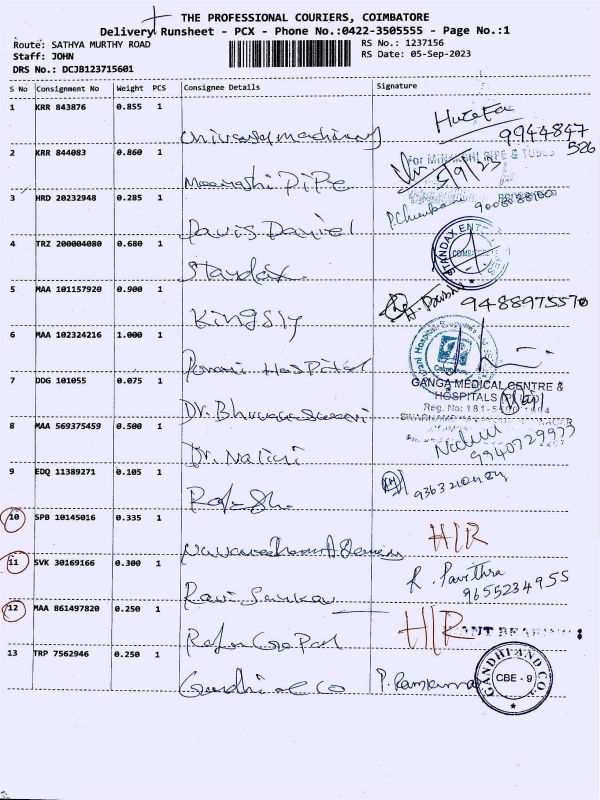 THE PROFESSIONAL COURIERS, COIMBATORE
Delivery Runsheet - PCX - Phone No.:0422-3505555 - Page No.:1
Route: SATHYA MURTHY ROAD
RS No.: 1237156
Staff: JOHN
RS Date: 05-Sep-2023
DRS No.: DCJB123715601
S No Consignment No Weight PCS Consignee Details Signature
1 KRR 843876 0.855 1
9944847
526
2 KRR 844083 0.860 1
For MINAKSHI PIPE & TUBES
5/9/23
Meenakshi Pipe
3 HRD 20232948 0.285 1
Davis Daniel
4 TRZ 200004080 0.680 1
STANDAX ENT
COIMBATORE
Standax
5 MAA 101157920 0.900 1
9488975570
Kingsly
6 MAA 102324216 1.000 1
Hospital
7 DDG 101055 0.075 1
GANGA MEDICAL CENTRE &
HOSPITALS (P)
Reg. No: 181-
Dr. Bhuvaneswari
8 MAA 569375459 0.500 1
Nalini
9940729977
Dr. Nalini
9 EDQ 11389271 0.105 1
Rajesh
10 SPB 10145016 0.335 1
H/R
11 SVK 30169166 0.300 1
R. Pavithra
9655234955
Ravi Sankar
12 MAA 861497820 0.250 1
H/R
Raja Gopal
13 TRP 7562946 0.250 1
Gandhi and Co
P. Ramkumar
GANDHI AND CO.
CBE - 9